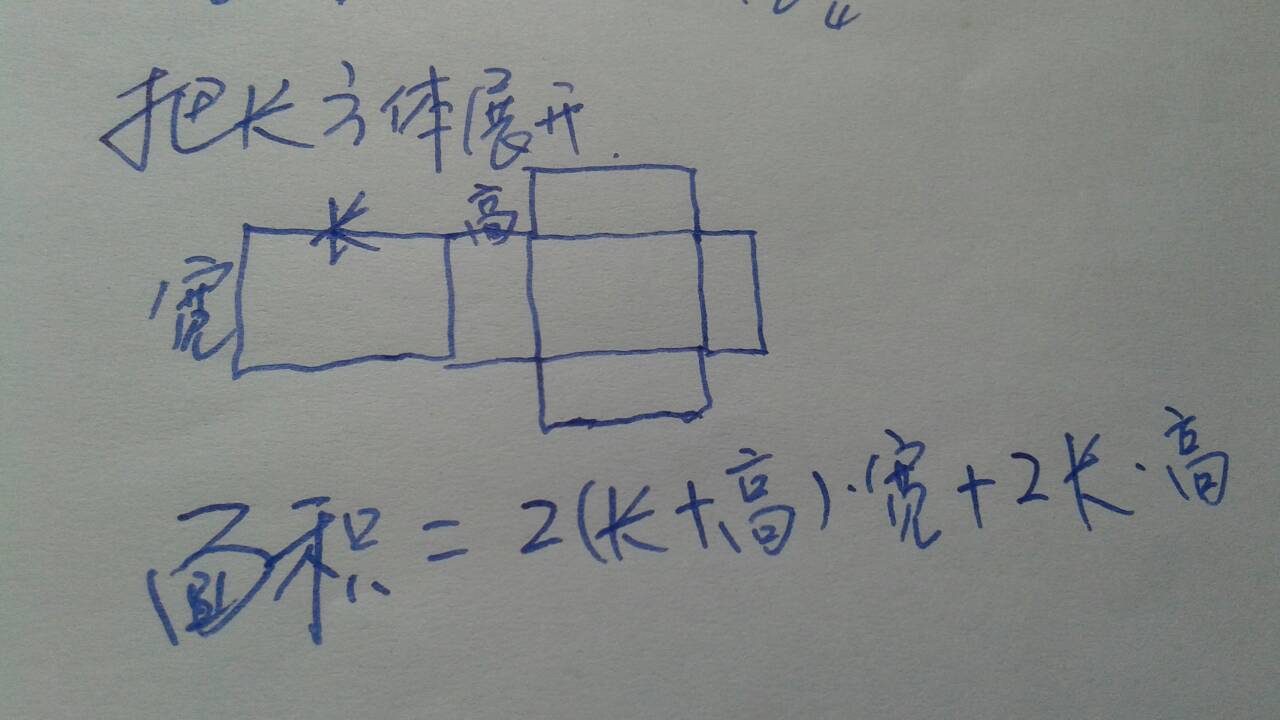 把长方体展开.
长 高
宽
面积 = 2(长+高)·宽+2长·高